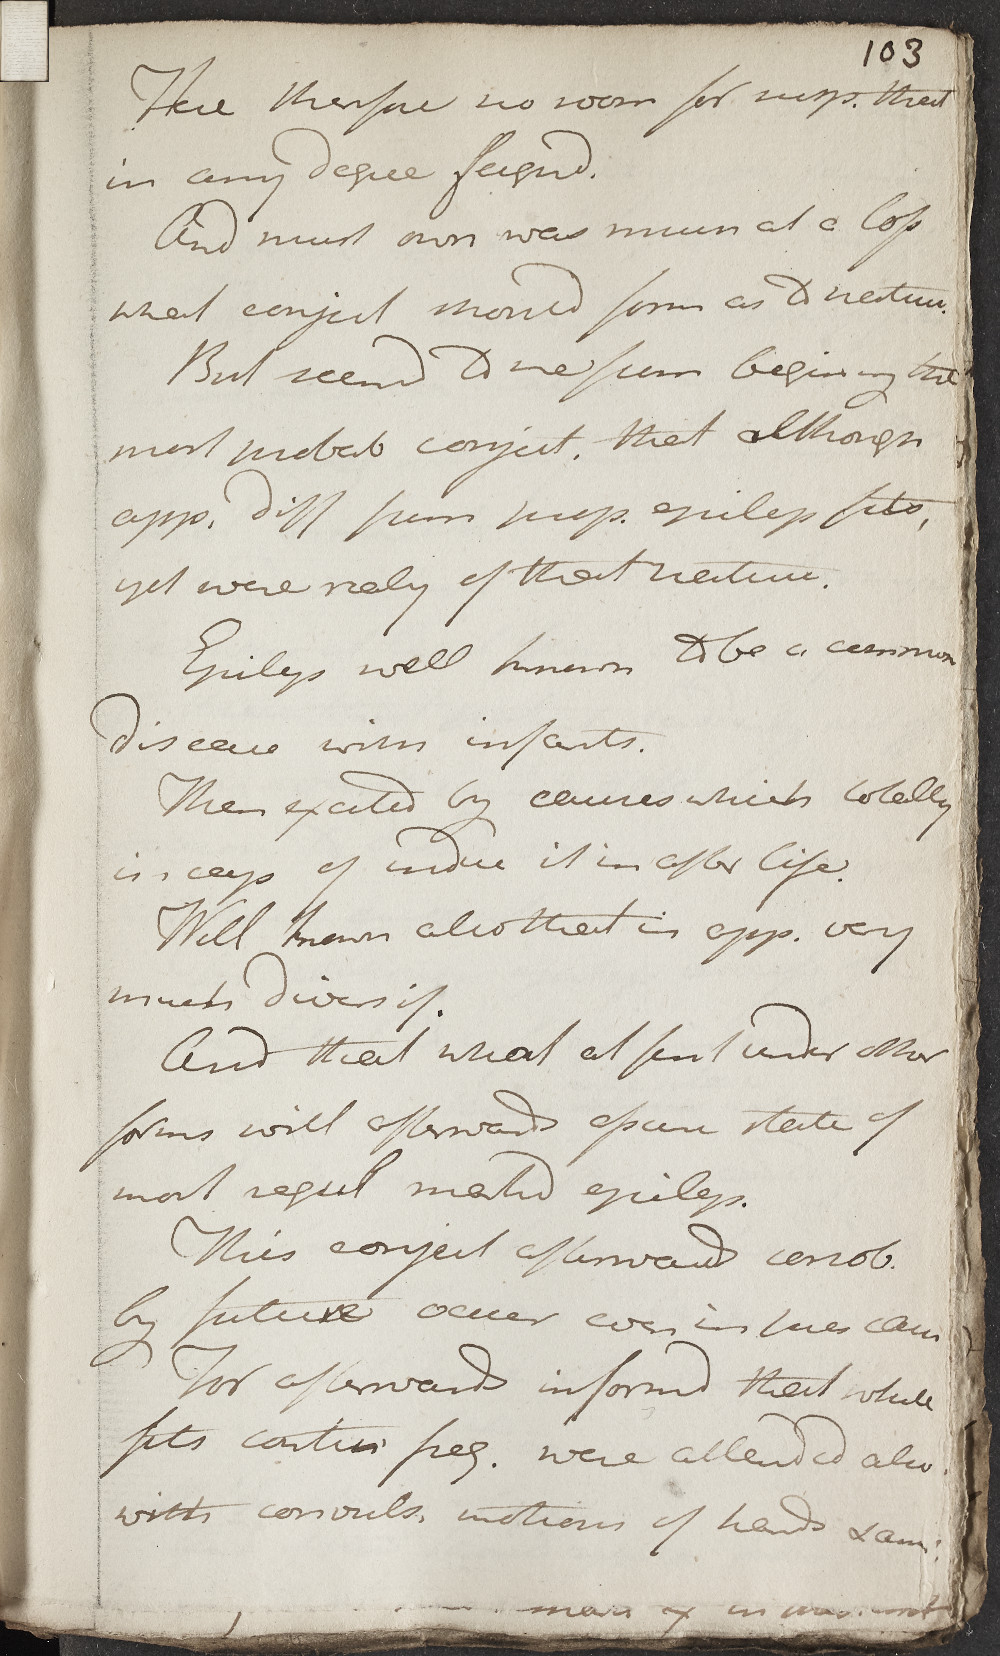 103
Here therefore no room for susp. that
in any degree feignd.
And must own was much at a loss
what conject should form as to nature.
But seemd to me from begining the
most probab conject. that although
app. diff from prop. epilep fits,
yet were realy of that nature.
Epileps well known to be a common
disease with infants.
Then excited by causes which totally
incap of induc it in after life.
Well known also that in app. very
much diversif.
And that what at first under other
forms will afterwards assume state of
most regul markd epileps.
This conject afterwards corrob.
by future occur even in pres case
For afterwards informd that while
fits contin freq. were attended also
with convuls. motions of hands & arm: